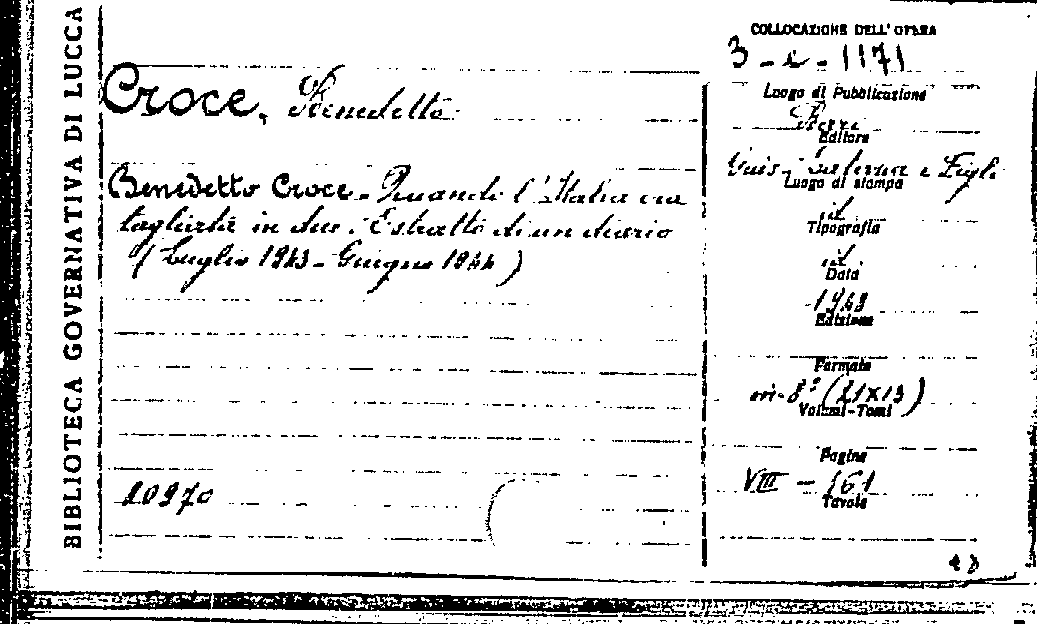 BIBLIOTECA GOVERNATIVA DI LUCCA
Croce, Benedetto
Benedetto Croce - Quando l'Italia era
tagliata in due. Estratto di un diario
(Luglio 1943 - Giugno 1944)
20970
COLLOCAZIONE DELL'OPERA
1171
Luogo di Pubblicazione
Bari
Editore
Gius. Laterza e Figli
Luogo di stampa
id
Tipografia
id
Data
1948
Edizione
Formato
in-8° (21x13)
Volumi-Tomi
Pagine
VIII - 161
Tavole